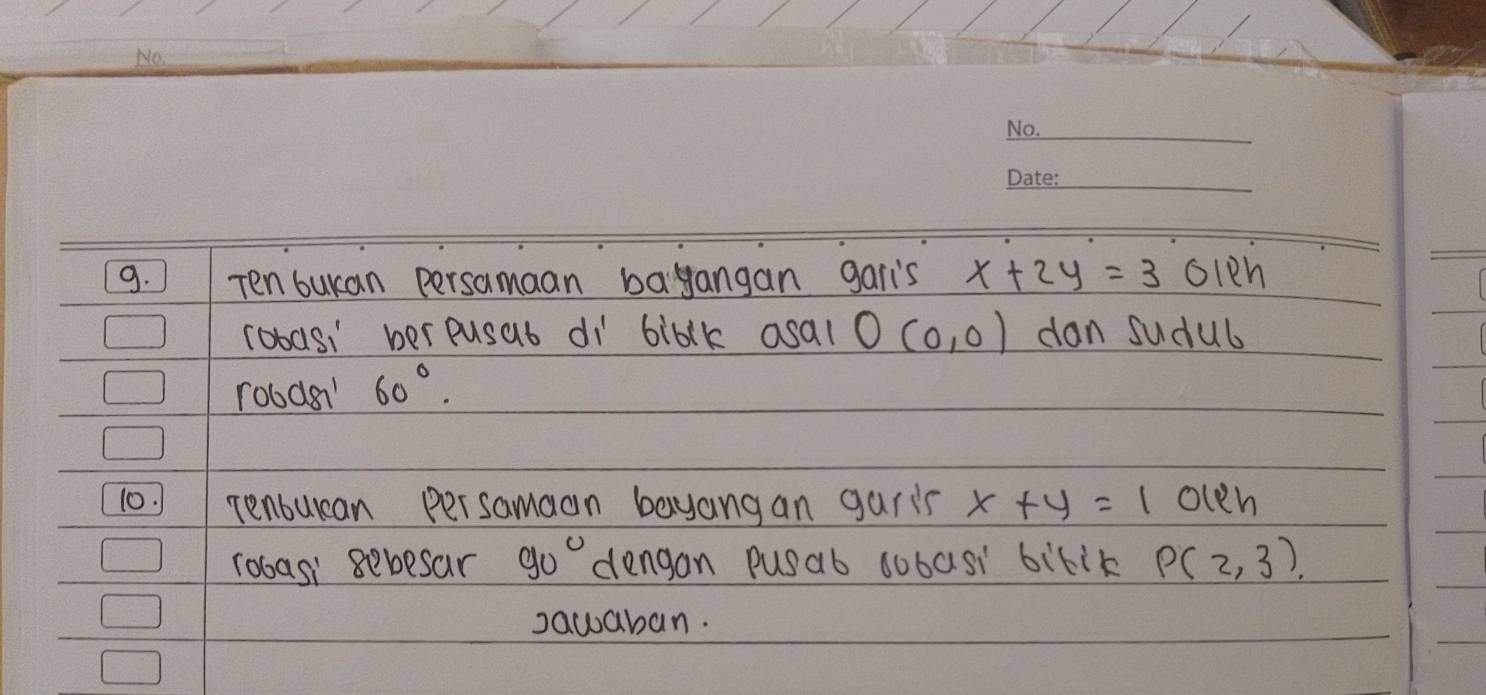 No.
No.
Date:
9. Tentukan persamaan bayangan garis x + 2y = 3 oleh
rotasi berpusat di titik asal O (0,0) dan sudut
rotasi 60°.
10. Tentukan persamaan bayangan garis x + y = 1 oleh
rotasi sebesar 90° dengan pusat rotasi titik P(2,3).
Jawaban.